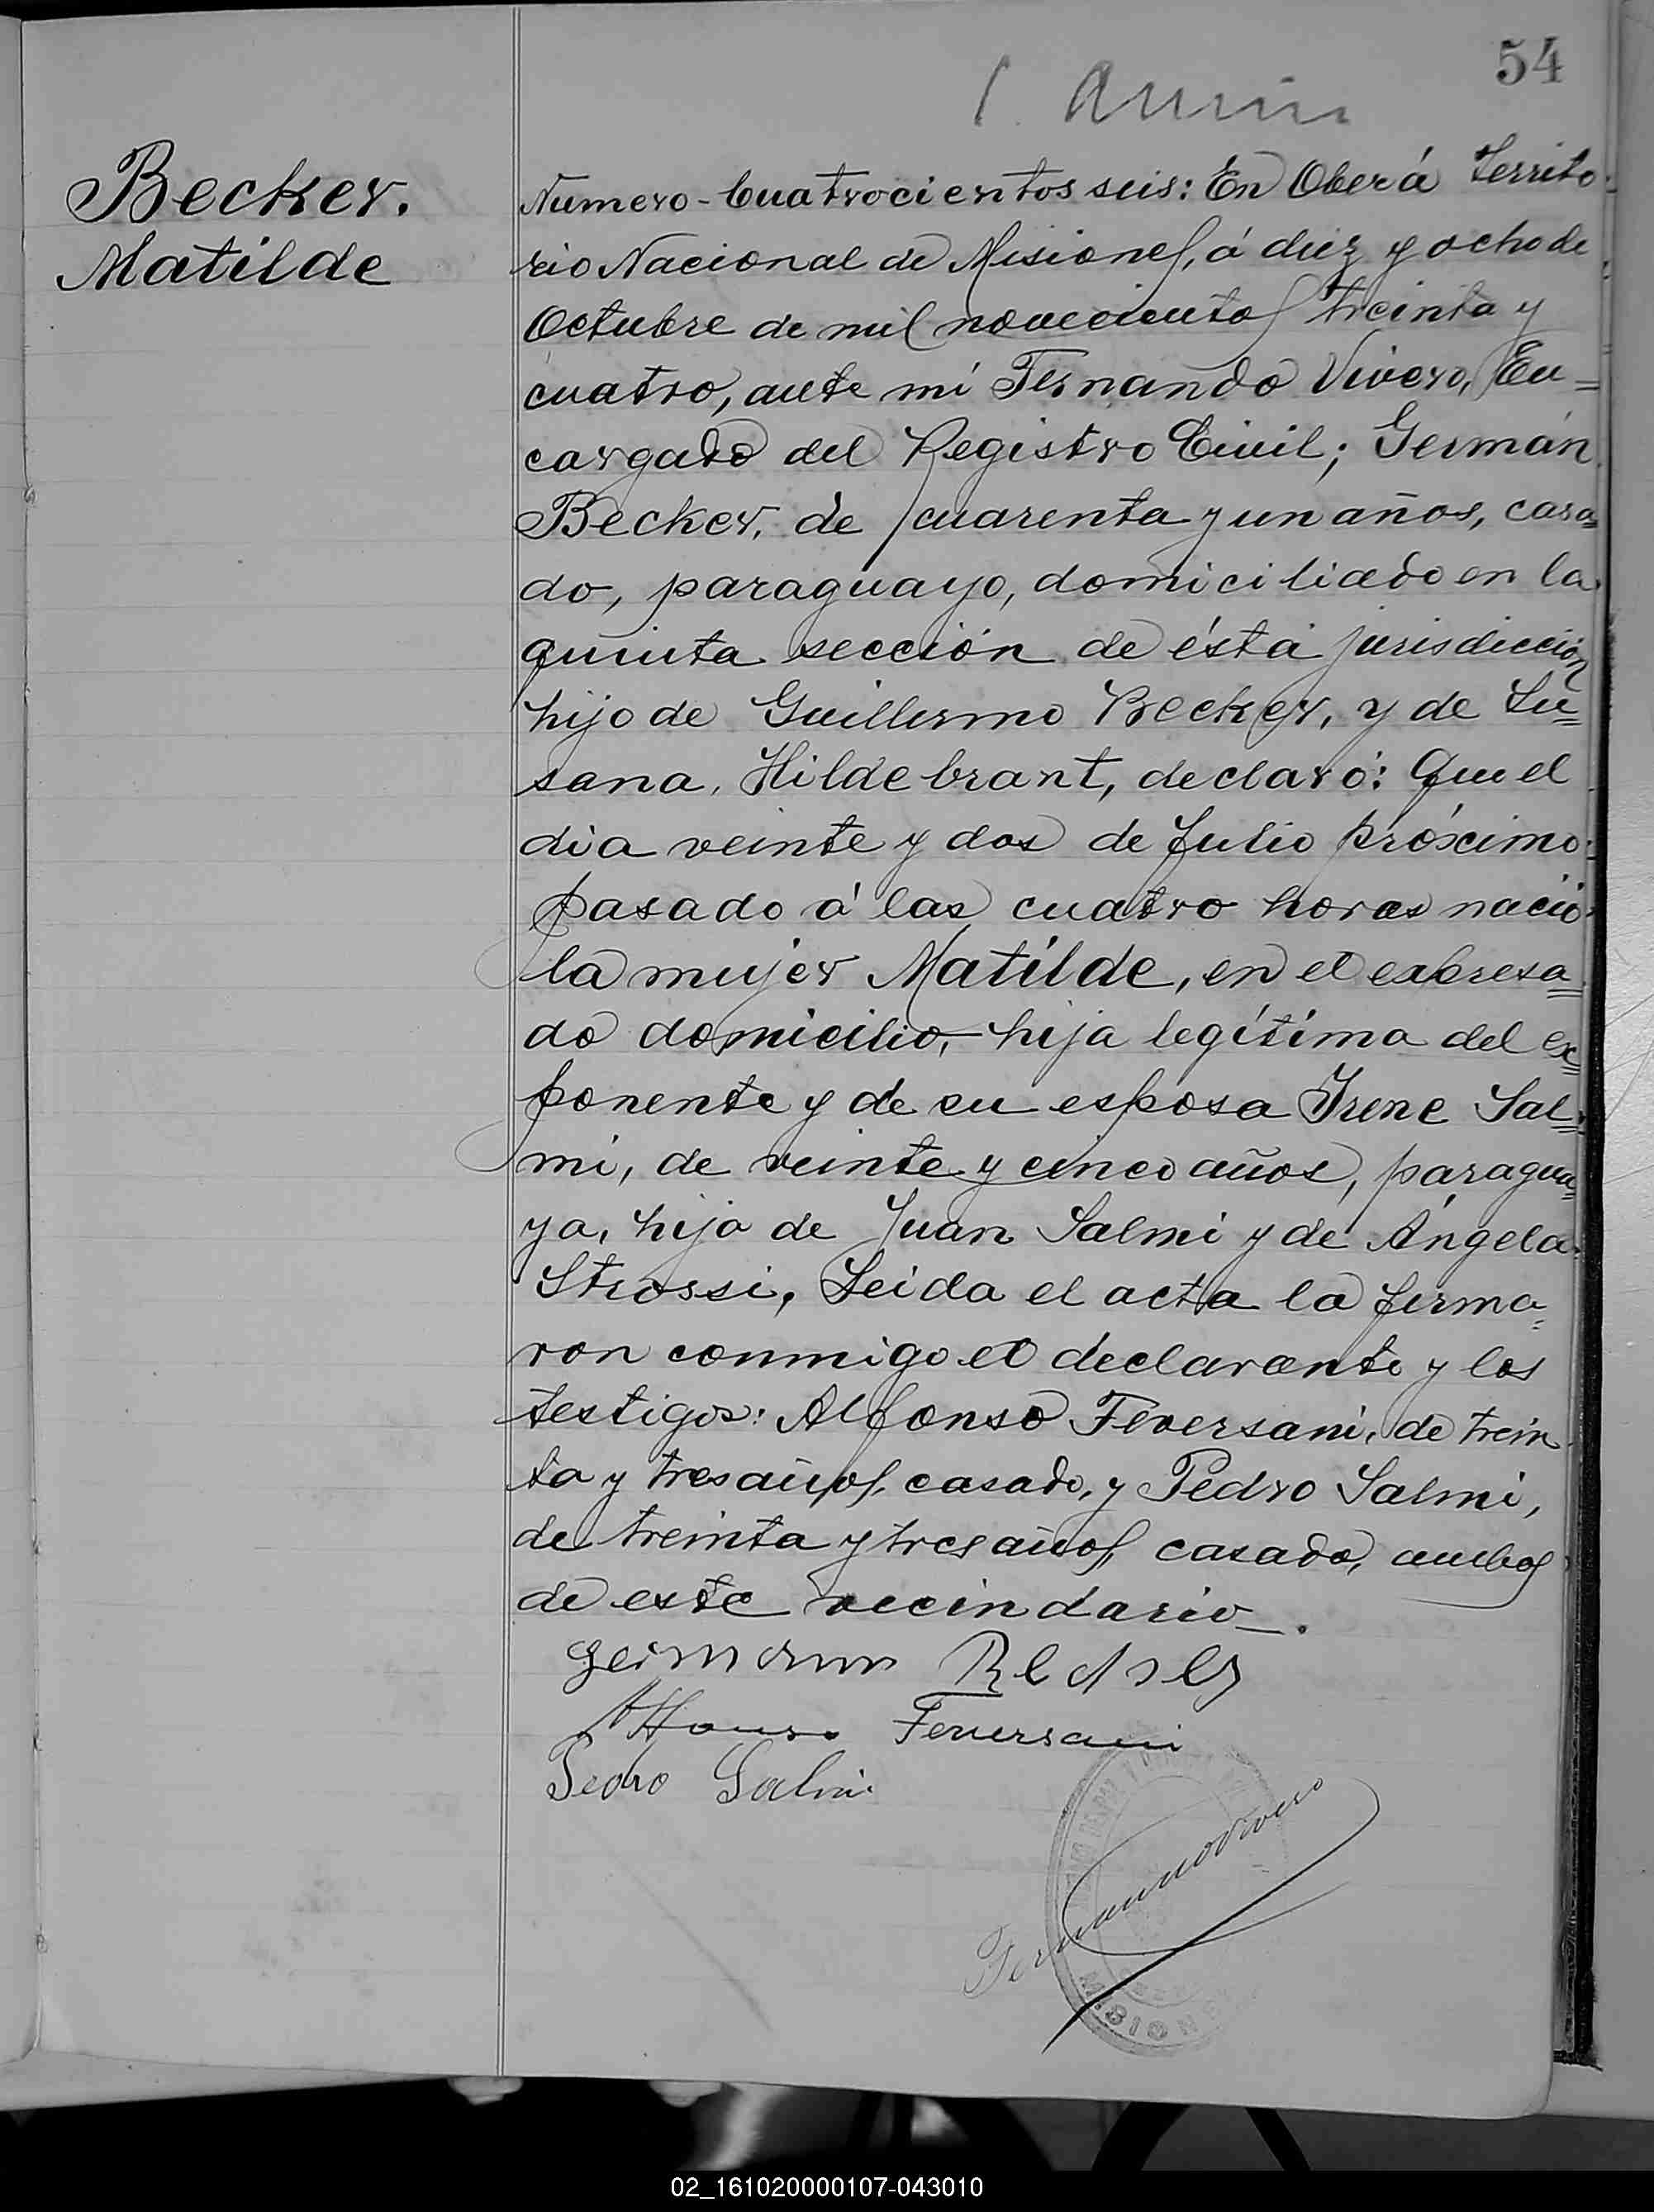 54
Becker.
Matilde
Numero-Cuatrocientos seis: En Oberá Territo-
rio Nacional de Misiones, á diez y ocho de
Octubre de mil novecientos treinta y
cuatro, ante mí Fernando Vivero, En=
cargado del Registro Civil; Germán
Becker, de cuarenta y un años, casa=
do, paraguayo, domiciliado en la
quinta sección de ésta jurisdicción
hijo de Guillermo Becker, y de Su=
sana, Hildebrant, declaró: Que el
dia veinte y dos de Julio próximo=
pasado á las cuatro horas nació
la mujer Matilde, en el expresa=
do domicilio, hija legítima del ex=
ponente y de su esposa Irene Sal=
mi, de veinte y cinco años, paragua=
ya, hija de Juan Salmi y de Ángela
Strossi, Leida el acta la firma=
ron conmigo el declarante y los
testigos: Alfonso Feversani, de trein
ta y tres años, casado, y Pedro Salmi,
de treinta y tres años, casado, ambos
de este vecindario_.
Alfonso Feversani
Pedro Salmi
Fernando Vivero
MISIONES
02_161020000107-043010